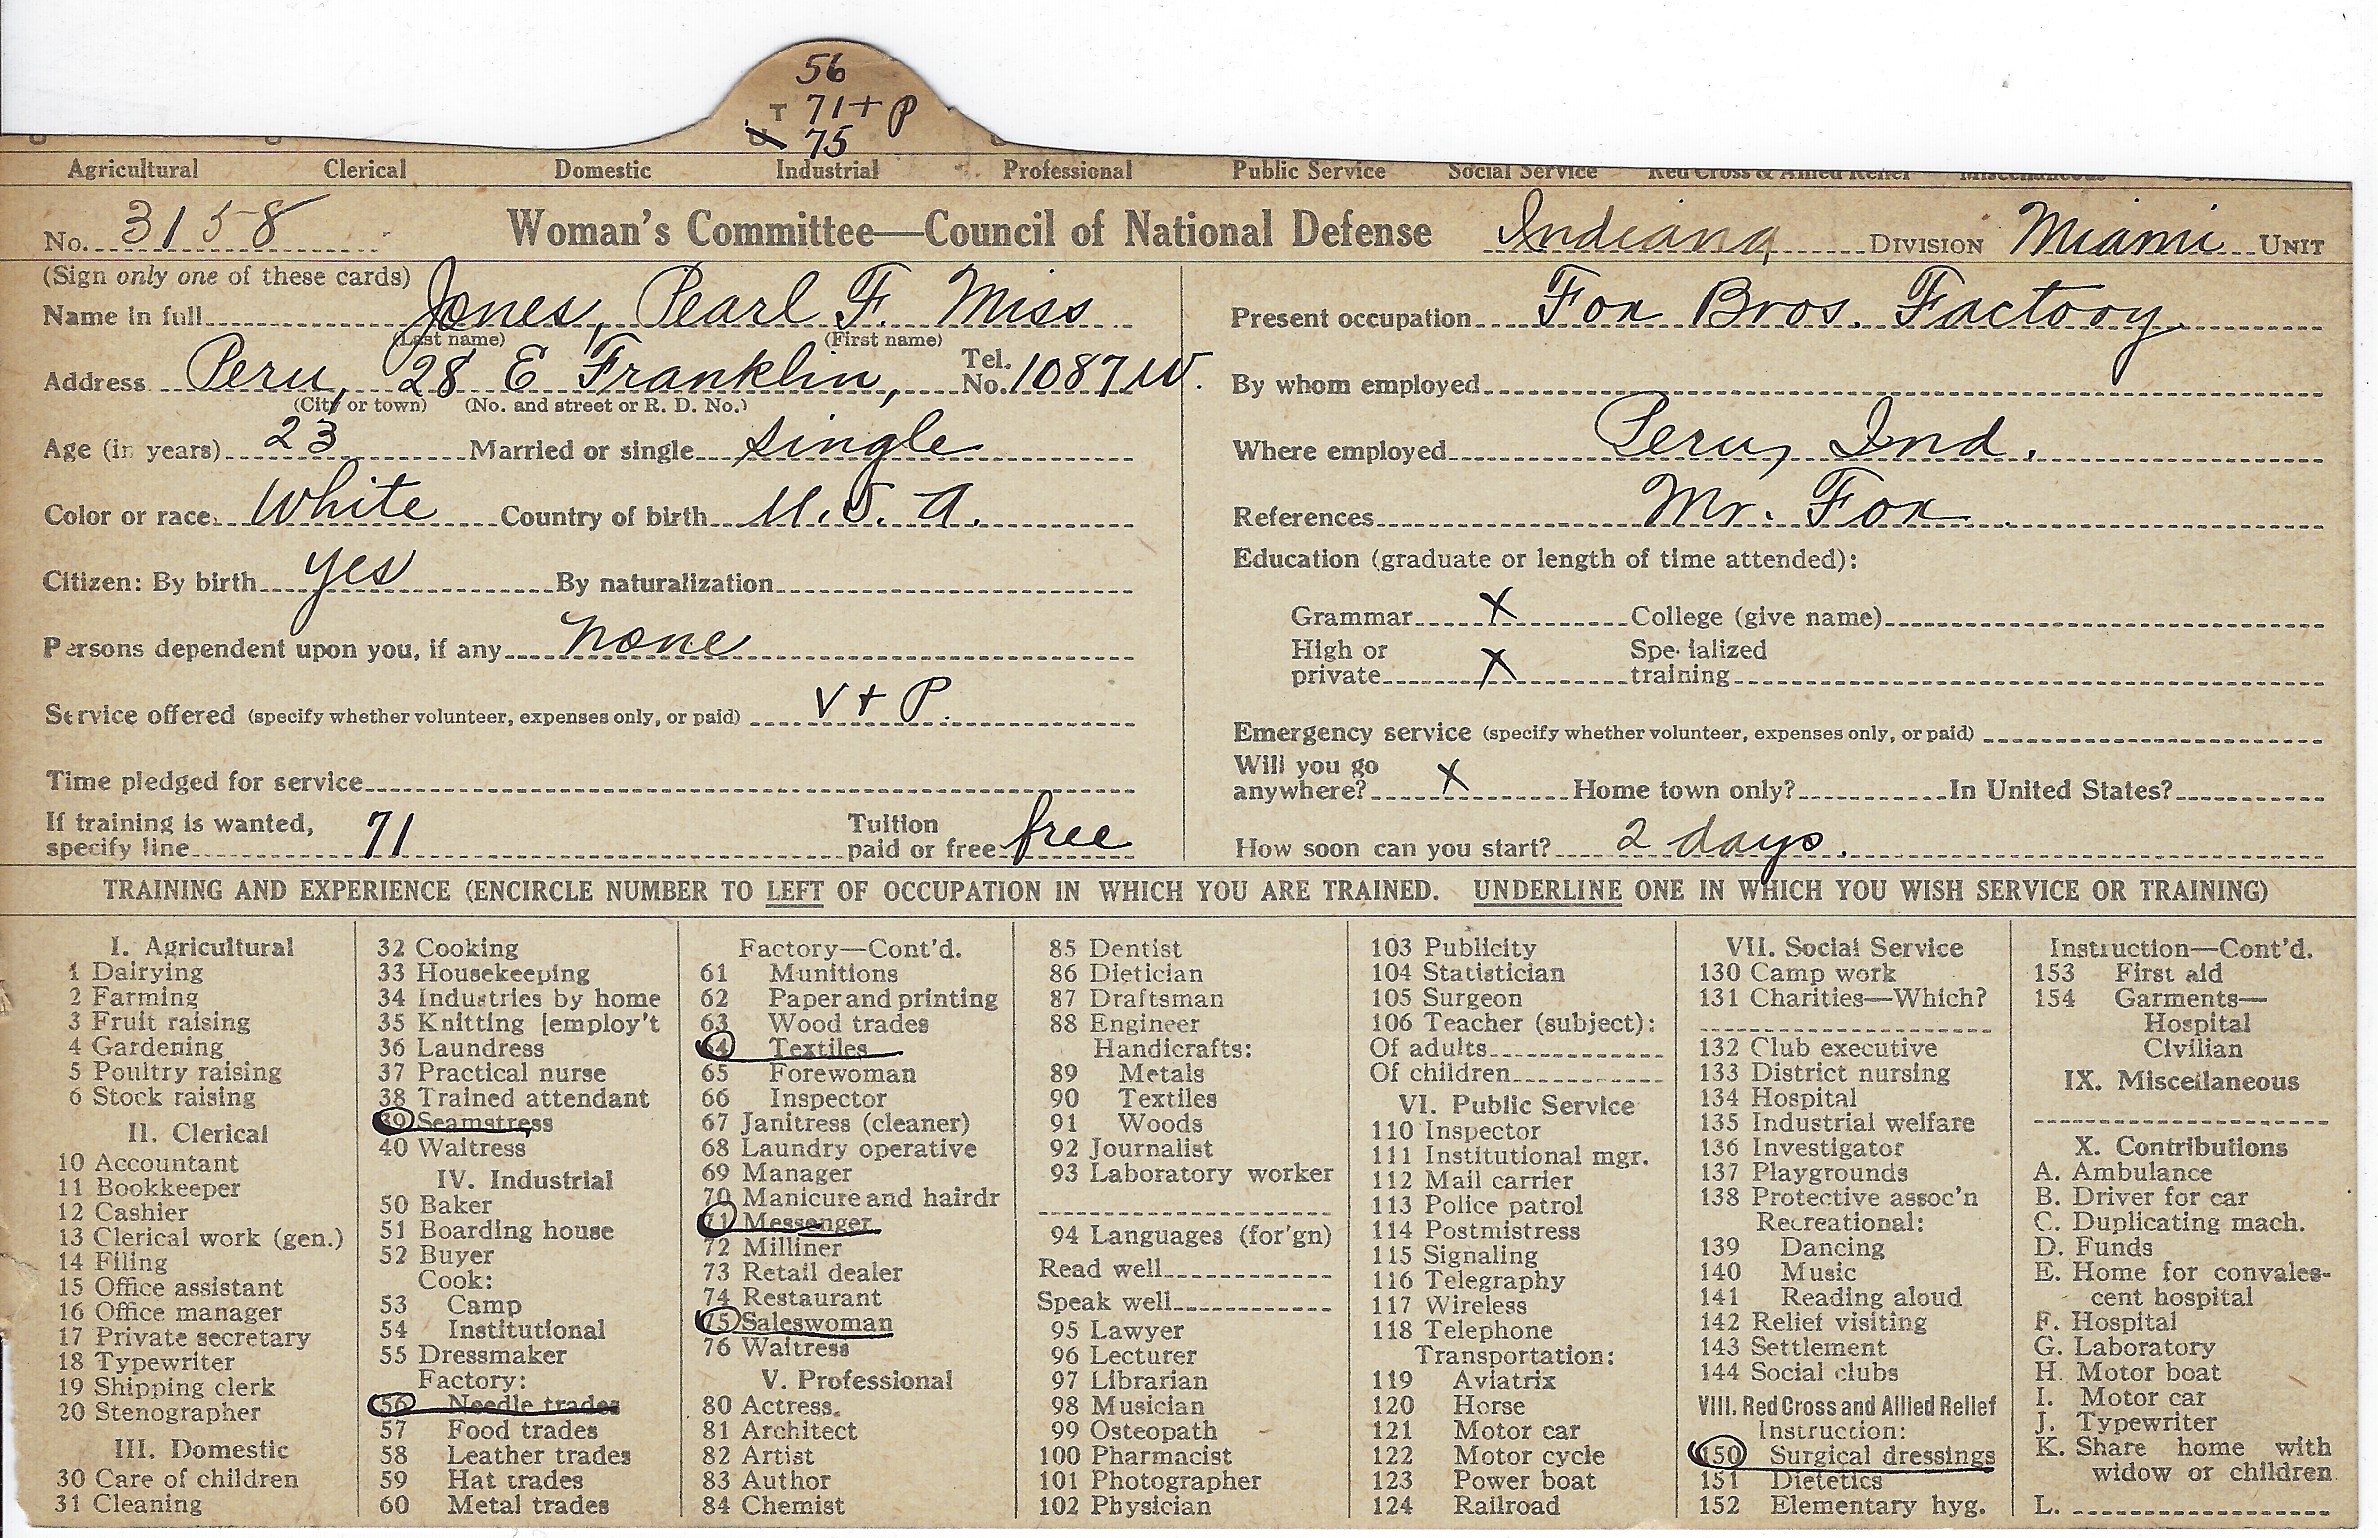 56
T 71 + P
75
Agricultural Clerical Domestic Industrial Professional Public Service Social Service Red Cross & Allied Relief Miscellaneous
No. 3158 Woman's Committee—Council of National Defense Indiana DIVISION Miami UNIT
(Sign only one of these cards)
Name in full Jones, Pearl F. Miss
(Last name) (First name)
Address Peru, 28 E Franklin, Tel. No. 1087 W.
(City or town) (No. and street or R. D. No.)
Age (in years) 23 Married or single single
Color or race White Country of birth U.S.A.
Citizen: By birth yes By naturalization
Persons dependent upon you, if any none
Service offered (specify whether volunteer, expenses only, or paid) V + P.
Time pledged for service
If training is wanted, specify line 71 Tuition paid or free free
Present occupation Fox Bros. Factory
By whom employed
Where employed Peru, Ind.
References Mr. Fox
Education (graduate or length of time attended):
Grammar X College (give name)
High or private X Specialized training
Emergency service (specify whether volunteer, expenses only, or paid)
Will you go anywhere? X Home town only? In United States?
How soon can you start? 2 days.
TRAINING AND EXPERIENCE (ENCIRCLE NUMBER TO LEFT OF OCCUPATION IN WHICH YOU ARE TRAINED. UNDERLINE ONE IN WHICH YOU WISH SERVICE OR TRAINING)
I. Agricultural
1 Dairying
2 Farming
3 Fruit raising
4 Gardening
5 Poultry raising
6 Stock raising
II. Clerical
10 Accountant
11 Bookkeeper
12 Cashier
13 Clerical work (gen.)
14 Filing
15 Office assistant
16 Office manager
17 Private secretary
18 Typewriter
19 Shipping clerk
20 Stenographer
III. Domestic
30 Care of children
31 Cleaning
32 Cooking
33 Housekeeping
34 Industries by home
35 Knitting [employ't
36 Laundress
37 Practical nurse
38 Trained attendant
39 Seamstress
40 Waitress
IV. Industrial
50 Baker
51 Boarding house
52 Buyer
Cook:
53 Camp
54 Institutional
55 Dressmaker
Factory:
56 Needle trades
57 Food trades
58 Leather trades
59 Hat trades
60 Metal trades
Factory—Cont'd.
61 Munitions
62 Paper and printing
63 Wood trades
64 Textiles
65 Forewoman
66 Inspector
67 Janitress (cleaner)
68 Laundry operative
69 Manager
70 Manicure and hairdr
71 Messenger
72 Milliner
73 Retail dealer
74 Restaurant
75 Saleswoman
76 Waitress
V. Professional
80 Actress
81 Architect
82 Artist
83 Author
84 Chemist
85 Dentist
86 Dietician
87 Draftsman
88 Engineer
Handicrafts:
89 Metals
90 Textiles
91 Woods
92 Journalist
93 Laboratory worker
94 Languages (for'gn)
Read well
Speak well
95 Lawyer
96 Lecturer
97 Librarian
98 Musician
99 Osteopath
100 Pharmacist
101 Photographer
102 Physician
103 Publicity
104 Statistician
105 Surgeon
106 Teacher (subject):
Of adults
Of children
VI. Public Service
110 Inspector
111 Institutional mgr.
112 Mail carrier
113 Police patrol
114 Postmistress
115 Signaling
116 Telegraphy
117 Wireless
118 Telephone
Transportation:
119 Aviatrix
120 Horse
121 Motor car
122 Motor cycle
123 Power boat
124 Railroad
VII. Social Service
130 Camp work
131 Charities—Which?
132 Club executive
133 District nursing
134 Hospital
135 Industrial welfare
136 Investigator
137 Playgrounds
138 Protective assoc'n
Recreational:
139 Dancing
140 Music
141 Reading aloud
142 Relief visiting
143 Settlement
144 Social clubs
VIII. Red Cross and Allied Relief
Instruction:
150 Surgical dressings
151 Dietetics
152 Elementary hyg.
Instruction—Cont'd.
153 First aid
154 Garments—
Hospital
Civilian
IX. Miscellaneous
X. Contributions
A. Ambulance
B. Driver for car
C. Duplicating mach.
D. Funds
E. Home for convales-
cent hospital
F. Hospital
G. Laboratory
H. Motor boat
I. Motor car
J. Typewriter
K. Share home with
widow or children
L.